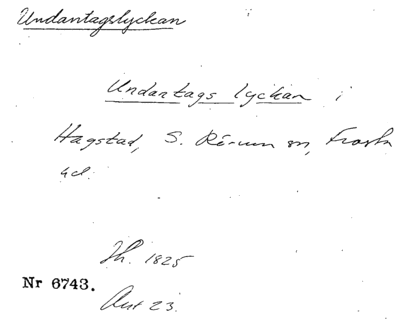 Undantagslyckan
Undantags lyckan i
Hagstad, S. Rörum sn, Frosta
hd.
Jh. 1825
Nr 6743.
Akt 23.